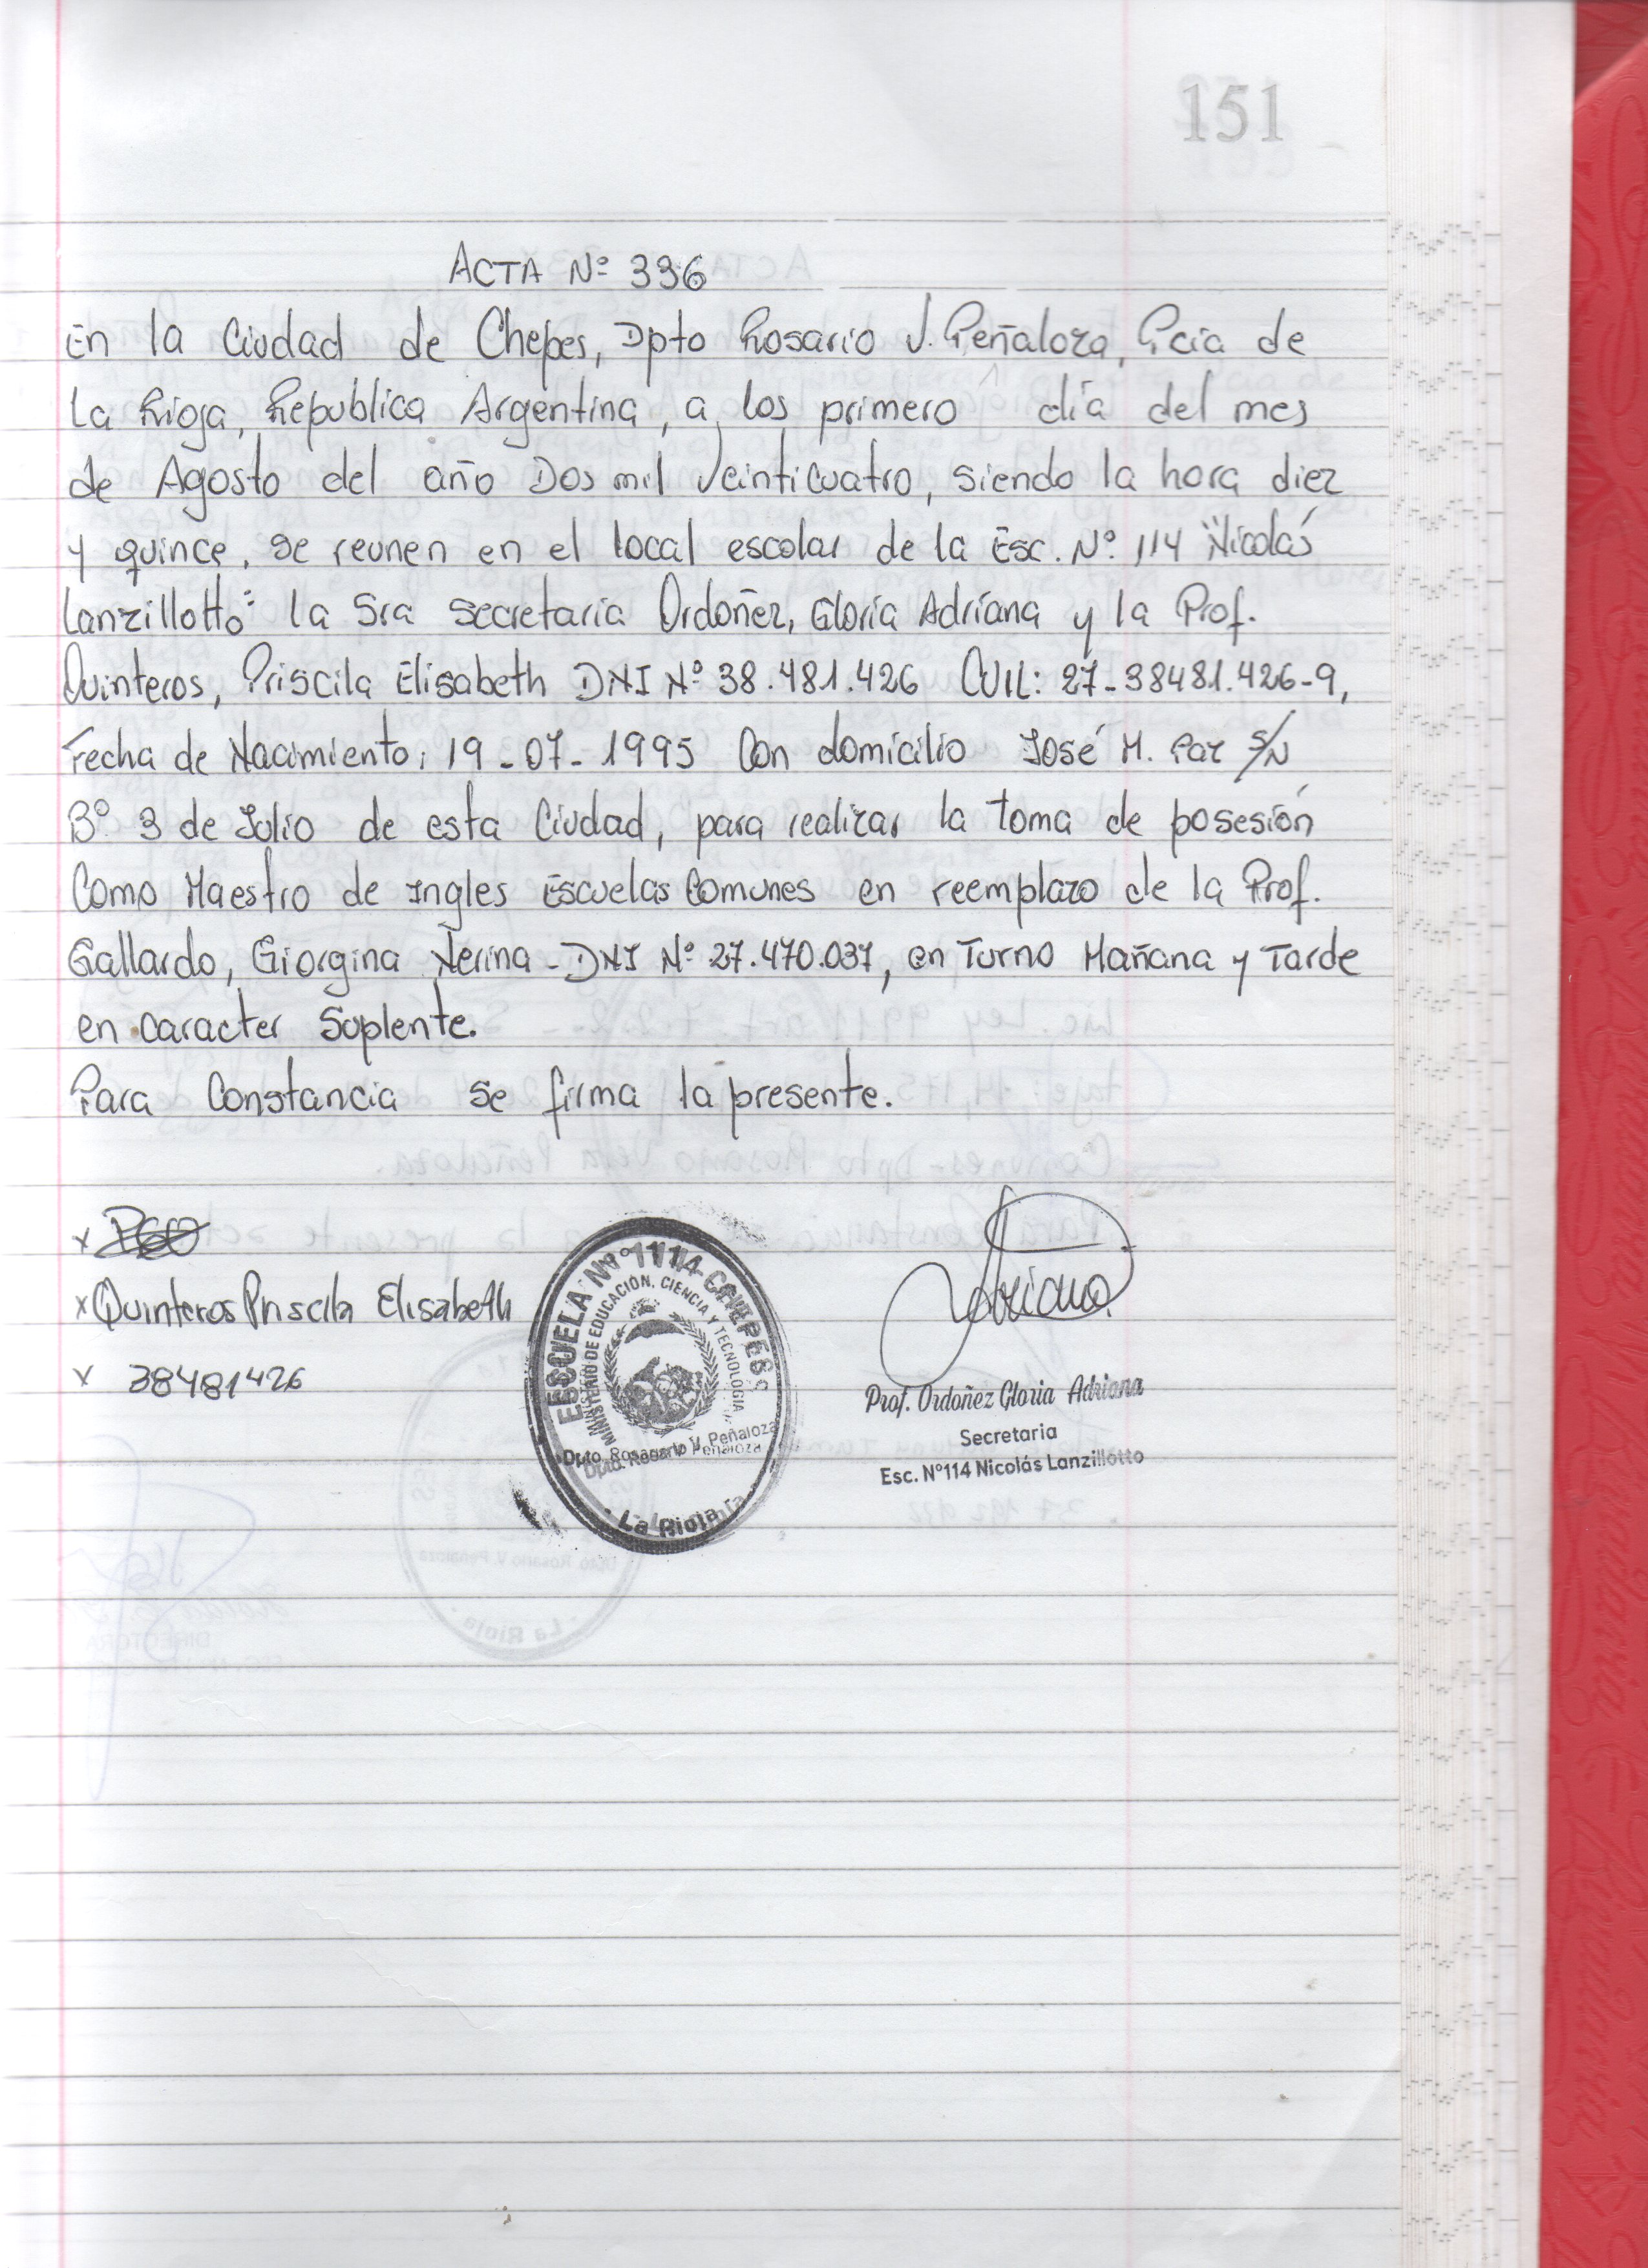 151
ACTA Nº 336
En la Ciudad de Chepes, Dpto Rosario V. Peñaloza, Pcia de
La Rioja, Republica Argentina, a los primero día del mes
de Agosto del año Dos mil Veinticuatro, siendo la hora diez
y quince, se reunen en el local escolar de la Esc. Nº 114 "Nicolás
Lanzillotto" la Sra Secretaria Ordoñez, Gloria Adriana y la Prof.
Quinteros, Priscila Elisabeth DNI Nº 38.481.426 CUIL: 27-38481.426-9,
Fecha de Nacimiento: 19-07-1995 Con domicilio José M. Paz S/N
Bº 3 de Julio de esta Ciudad, para realizar la toma de posesión
Como Maestro de Ingles Escuelas Comunes en reemplazo de la Prof.
Gallardo, Giorgina Nerina - DNI Nº 27.470.037, en Turno Mañana y Tarde
en caracter Suplente.
Para Constancia se firma la presente.
x
x Quinteros Priscila Elisabeth
x 38481426
ESCUELA Nº 114 - CHEPES
MINISTERIO DE EDUCACIÓN, CIENCIA Y TECNOLOGIA
Dpto. Rosario V. Peñaloza
La Rioja
Adriana
Prof. Ordoñez Gloria Adriana
Secretaria
Esc. Nº114 Nicolás Lanzillotto